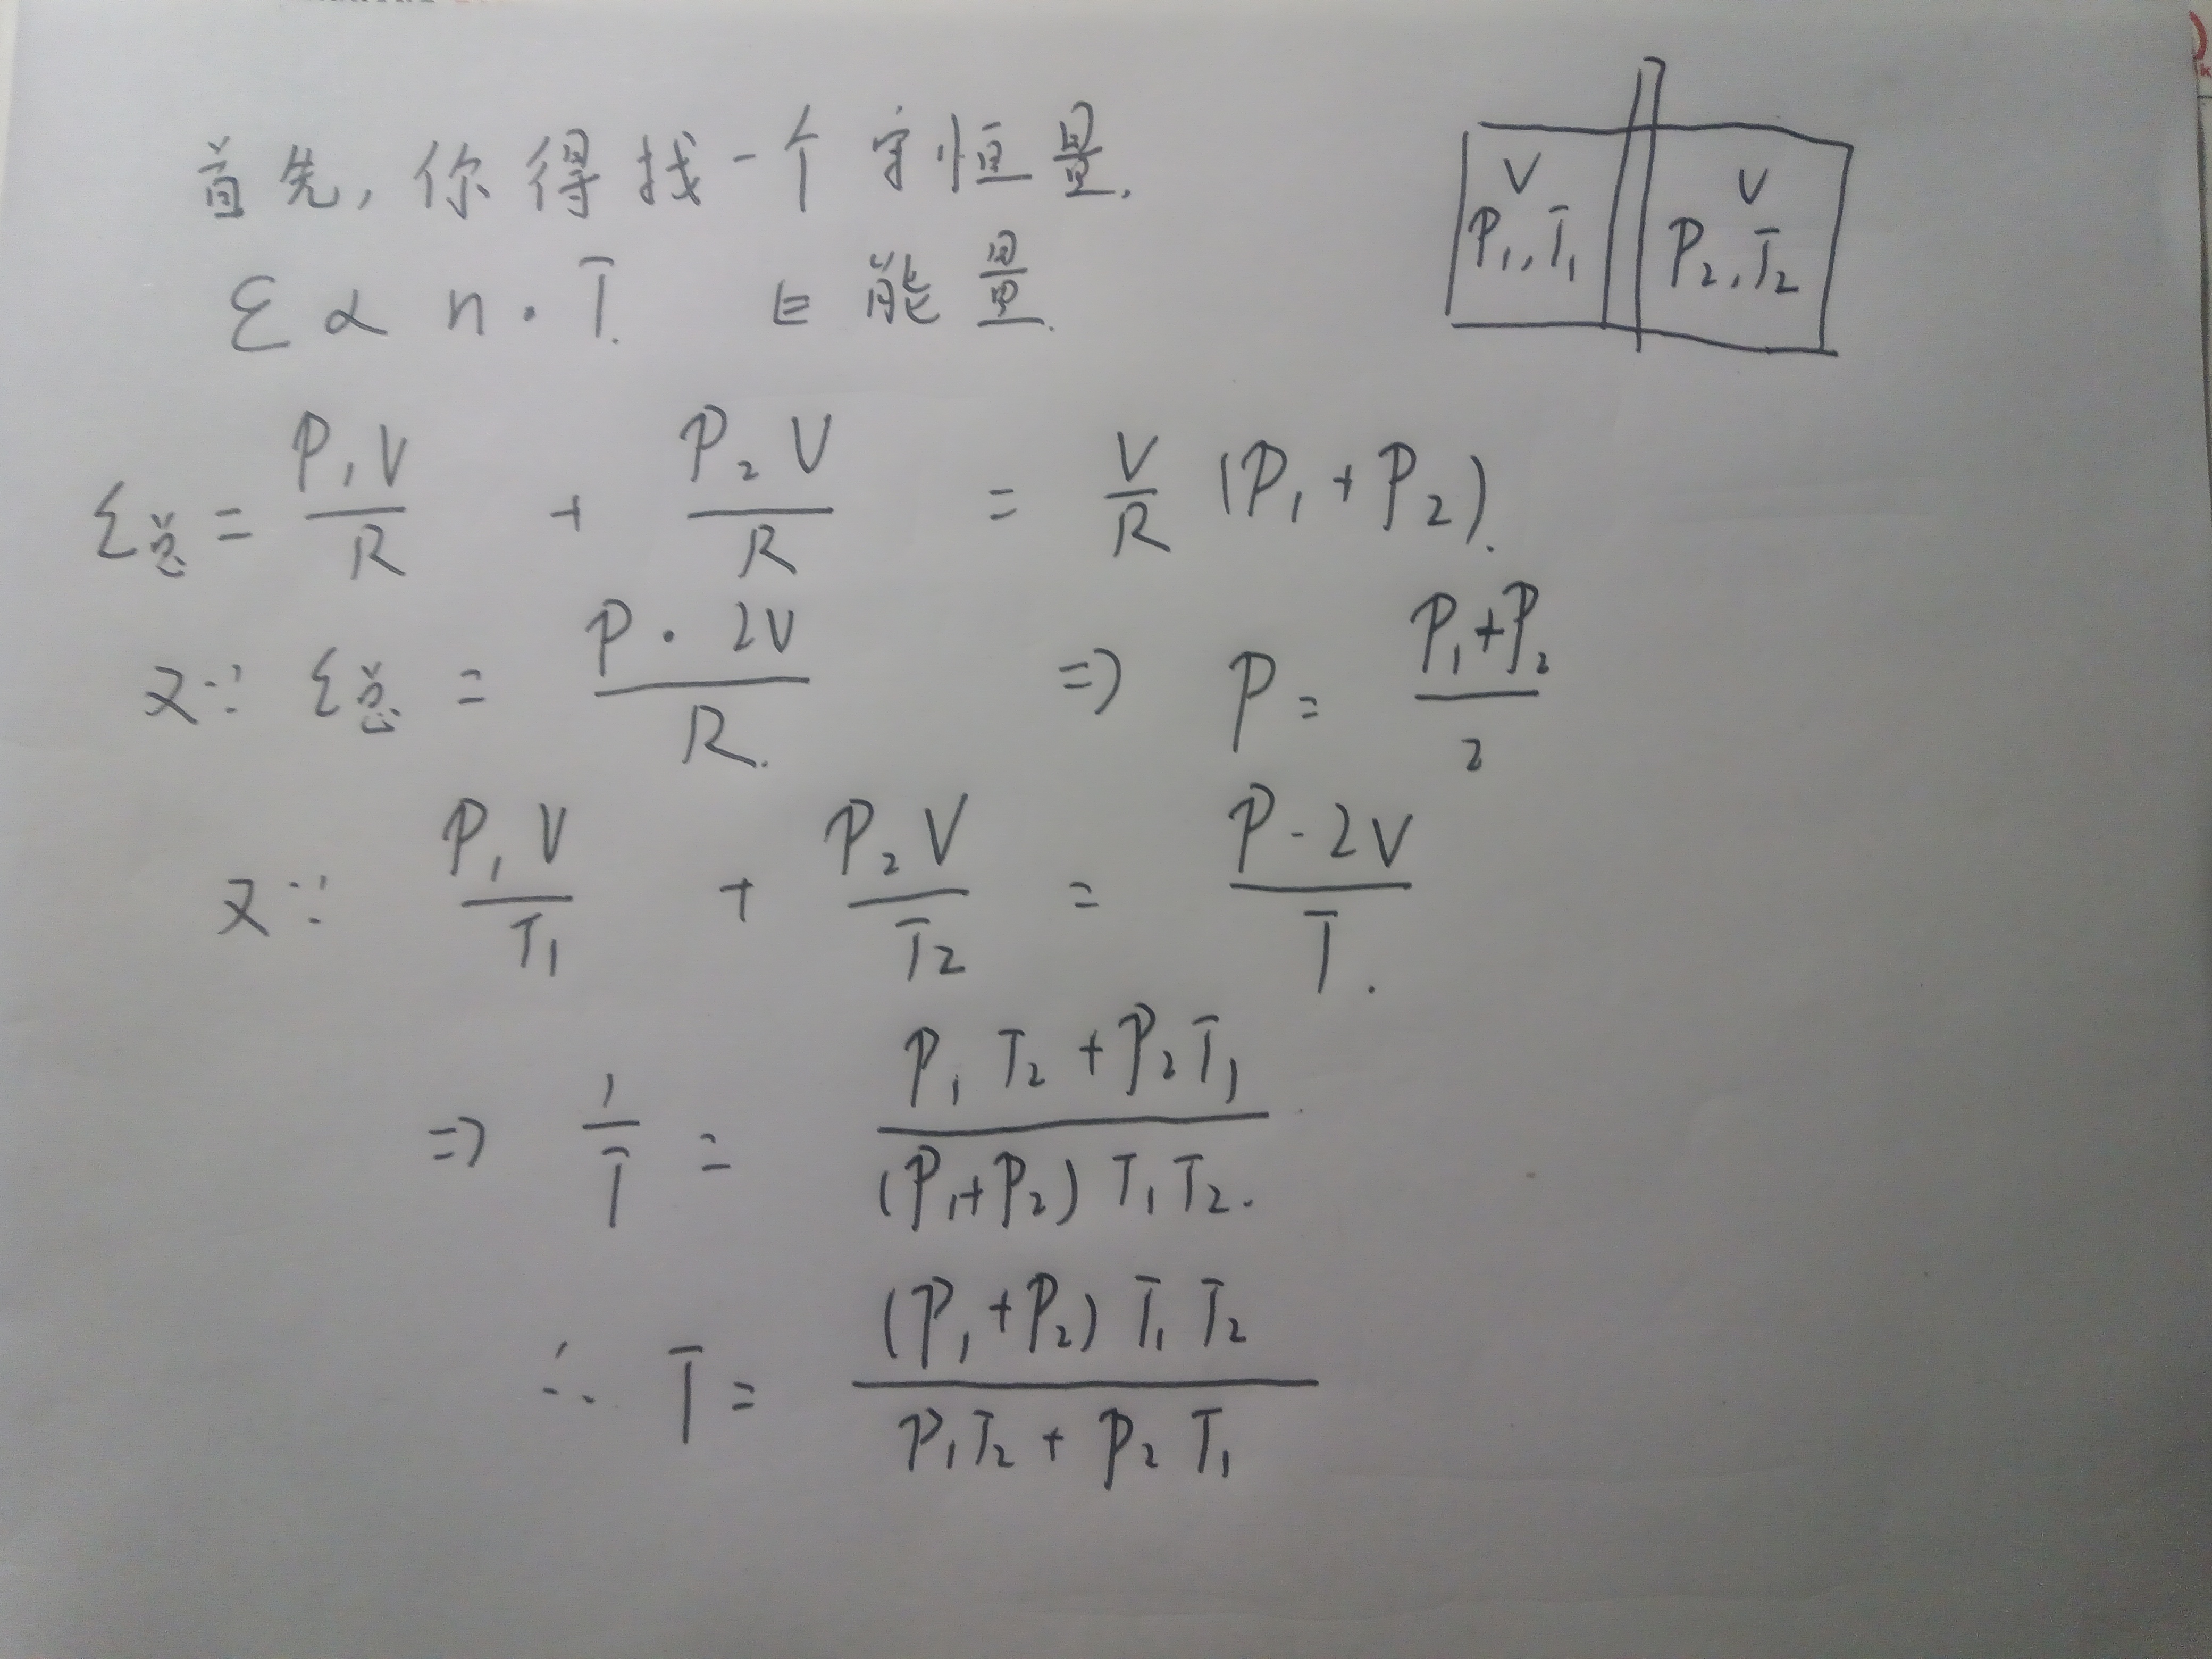 首先,你得找一个守恒量.
V
P₁,T₁
V
P₂,T₂
ε ∝ n·T. E能量.
ε总 = P₁V/R + P₂V/R = V/R (P₁+P₂).
又∵ ε总 = P·2V/R. ⇒ P = (P₁+P₂)/2
又∵ P₁V/T₁ + P₂V/T₂ = P·2V/T.
⇒ 1/T = (P₁T₂+P₂T₁)/((P₁+P₂)T₁T₂).
∴ T = ((P₁+P₂)T₁T₂)/(P₁T₂+P₂T₁)